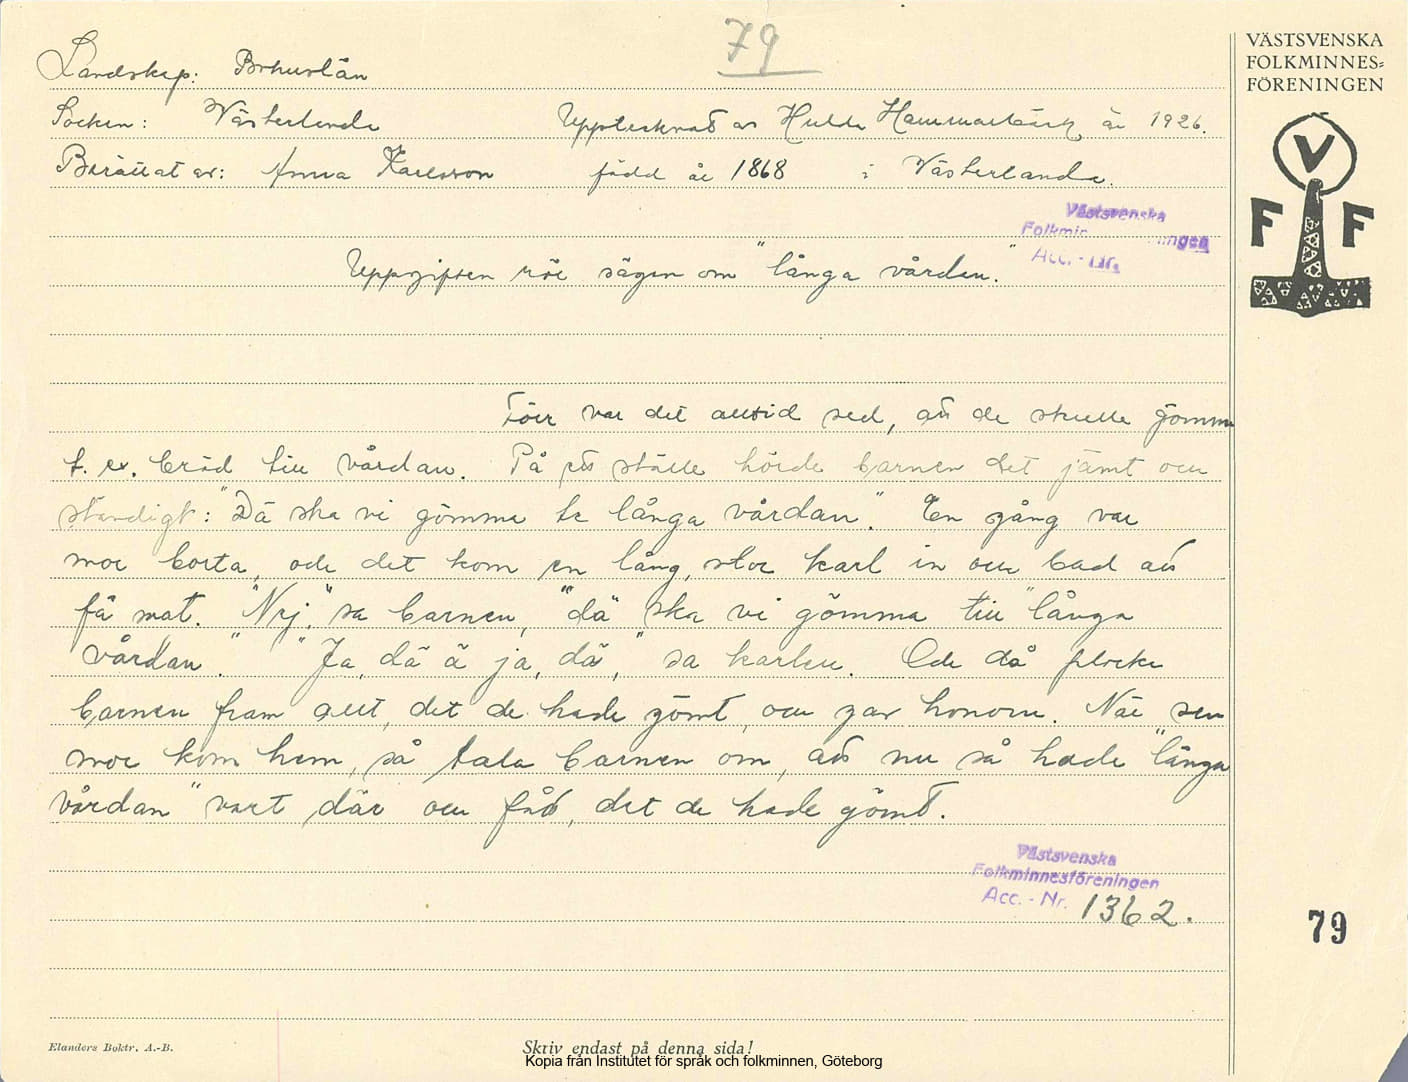 79
VÄSTSVENSKA
FOLKMINNES=
FÖRENINGEN
V
F F
Landskap: Bohuslän
Socken: Västerlanda Upptecknat av Hulda Hammarbäck år 1926.
Berättat av: Anna Karlsson född år 1868 i Västerlanda.
Västsvenska
Folkmin ningen
Acc. - Nr.
Uppgiften rör sägen om "långa vårdan."
Förr var det alltid sed, att de skulle gömma
t. ex. bröd till vårdan. På ett ställe hörde barnen det jämt och
ständigt: "Dä ska vi gömma te långa vårdan". En gång var
mor borta, och det kom en lång, stor karl in och bad att
få mat. "Nej," sa barnen, "dä" ska vi gömma till "långa
vårdan." "Ja, dä ä ja, dä," sa karlen. Och då plocka
barnen fram allt, det de hade gömt, och gav honom. När sen
mor kom hem, så tala barnen om, att nu så hade "långa
vårdan" vart där och fått, det de hade gömt.
Västsvenska
Folkminnesföreningen
Acc. - Nr. 1362.
79
Elanders Boktr. A.-B.
Skriv endast på denna sida!
Kopia från Institutet för språk och folkminnen, Göteborg